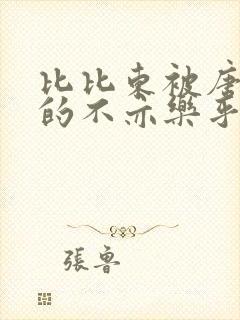 比比東被唐
的不亦樂乎
張魯